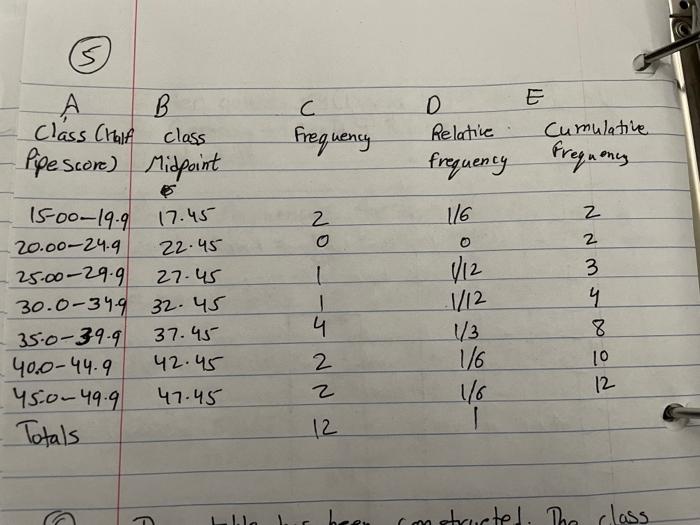 5
A B C D E
Class (Half class Frequency Relative Cumulative
Pipe score) Midpoint frequency frequency
15.00-19.9 17.45 2 1/6 2
20.00-24.9 22.45 0 0 2
25.00-29.9 27.45 1 1/12 3
30.0-34.9 32.45 1 1/12 4
35.0-39.9 37.45 4 1/3 8
40.0-44.9 42.45 2 1/6 10
45.0-49.9 47.45 2 1/6 12
Totals 12 1
table has been constructed. The class